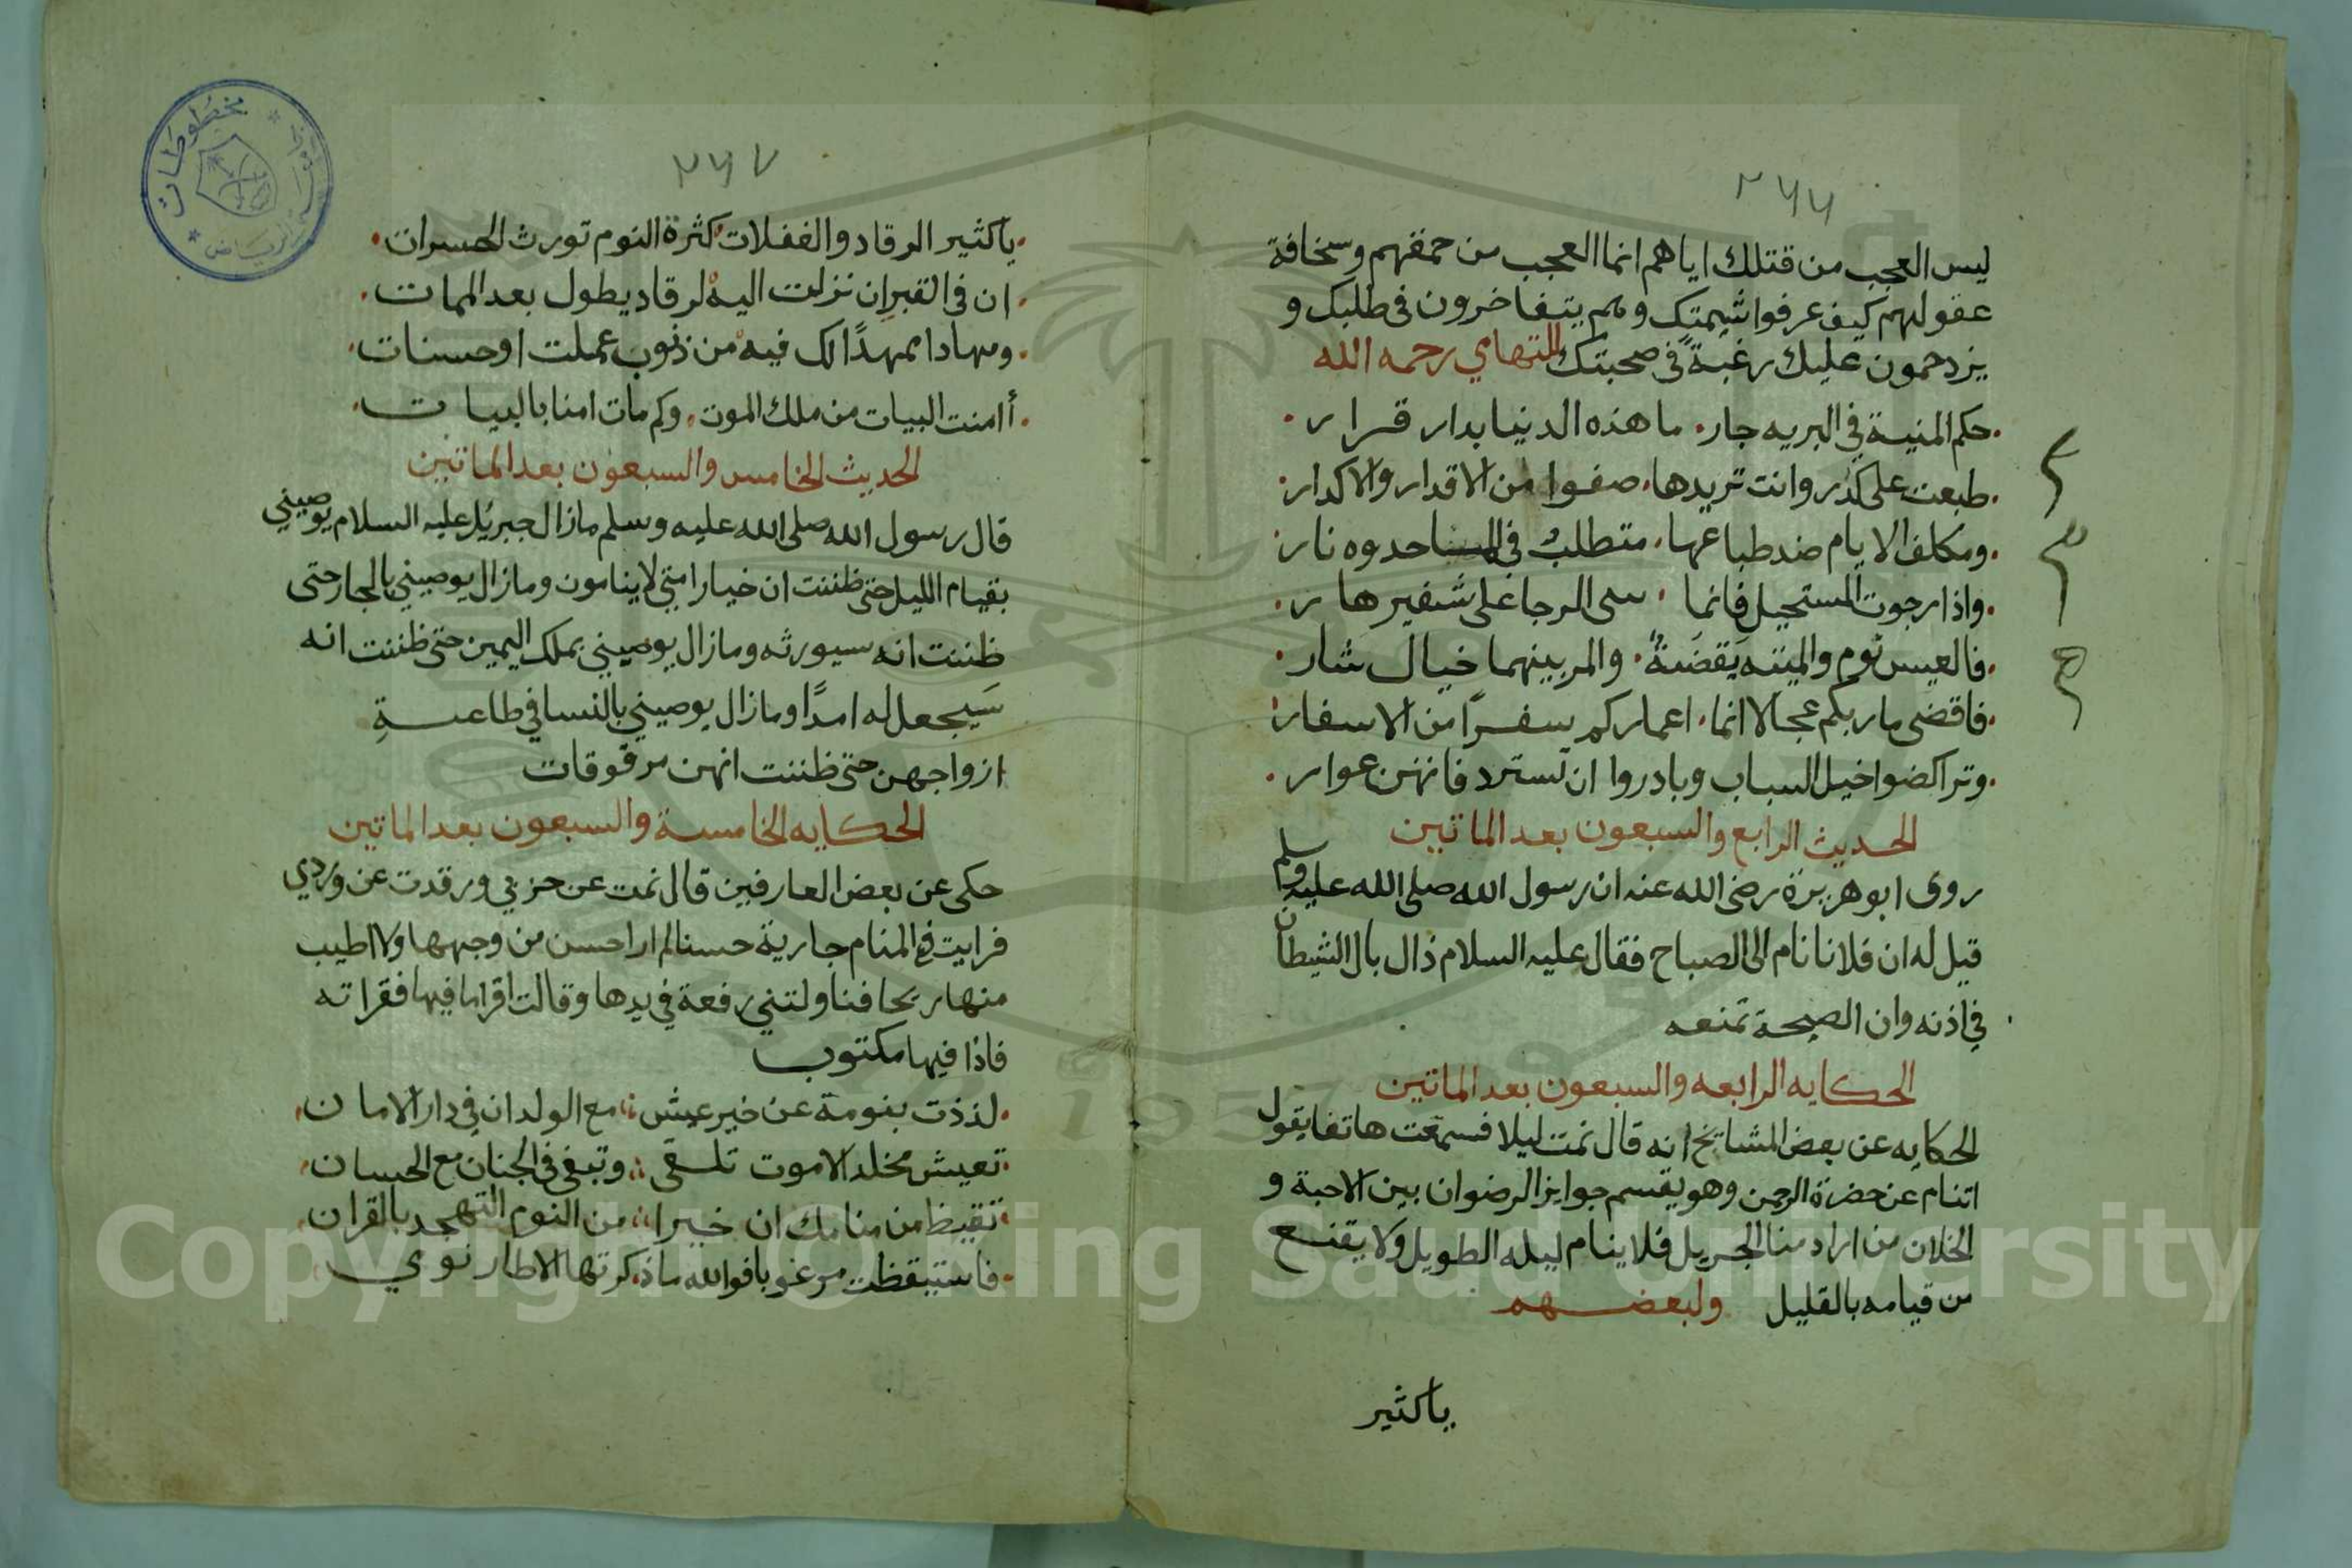 ٢٦٦
ليس العجب من قتلك اياهم انما العجب من حمقهم وسخافة
عقولهم كيف عرفوا شيمتك وهم يتفاخرون في طلبك و
يزدحمون عليك رغبةً في صحبتك للتهامي رحمه الله
حكم المنية في البريه جار ما هذه الدنيا بدار قرار
طبعت على كدر وانت تريدها صفوا من الاقدار والاكدار
ومكلف الايام ضد طباعها متطلبٌ في الما جدوه نار
واذا رجوت المستحيل فانما سى الرجا على شفير هار
فالعيس نوم والميته يقضة والمر بينهما خيال شار
فاقضى ماربكم عجالا انما اعماركم سفرًا من الاسفار
وتراكضوا خيل السباب وبادروا ان تسترد فانهن عوار
الحديث الرابع والسبعون بعد الماتين
روى ابو هريرة رضى الله عنه ان رسول الله صلى الله عليه وسلم
قيل له ان فلانا نام الى الصباح فقال عليه السلام ذال بال الشيطان
في اذنه وان الصيحة تمنعه
الحكايه الرابعه والسبعون بعد الماتين
الحكايه عن بعض المشايخ انه قال نمت ليلا فسمعت هاتفا يقول
اتنام عن حضرة الرحمن وهو يقسم جوايز الرضوان بين الاحبة و
الخلان من اراد منا الجزيل فلا ينام ليله الطويل ولا يقنع
من قيامه بالقليل ولبعضهم
ياكثير
٢٦٧
ياكثير الرقاد والغفلات كثرة النوم تورث الحسرات
ان في القبر ان نزلت اليه لرقاد يطول بعد الممات
ومهادا ممهدًا لك فيه من ذنوب عملت او حسنات
أامنت البيات من ملك الموت وكم مات امنا بالبيات
الحديث الخامس والسبعون بعد الماتين
قال رسول الله صلى الله عليه وسلم مازال جبريل عليه السلام يوصيني
بقيام الليل حتى ظننت ان خيار امتي لا ينامون ومازال يوصيني بالجار حتى
ظننت انه سيورثه ومازال يوصيني بملك اليمين حتى ظننت انه
سَيجعل له امدًا ومازال يوصيني بالنسا في طاعةِ
ازواجهن حتى ظننت انهن مرقوقات
الحكايه الخامسة والسبعون بعد الماتين
حكى عن بعض العارفين قال نمت عن حزبي ورقدت عن وردي
فرايت في المنام جارية حسنا لم ار احسن من وجهها ولا اطيب
منها ريحا فناولتني رفعة في يدها وقالت اقرا ما فيها فقراته
فاذا فيها مكتوب
لذذت بنومة عن خير عيش مع الولدان في دار الامان
تعيش مخلد الاموت تلقى وتبغى في الجنان مع الحسان
تقيظ من منامك ان خيرا من النوم التهجد بالقران
فاستيقظت مرغوبا فوالله ما ذكرتها الا طار نومي
مخطوطات
الرياض
1957
Copyright © King Saud University